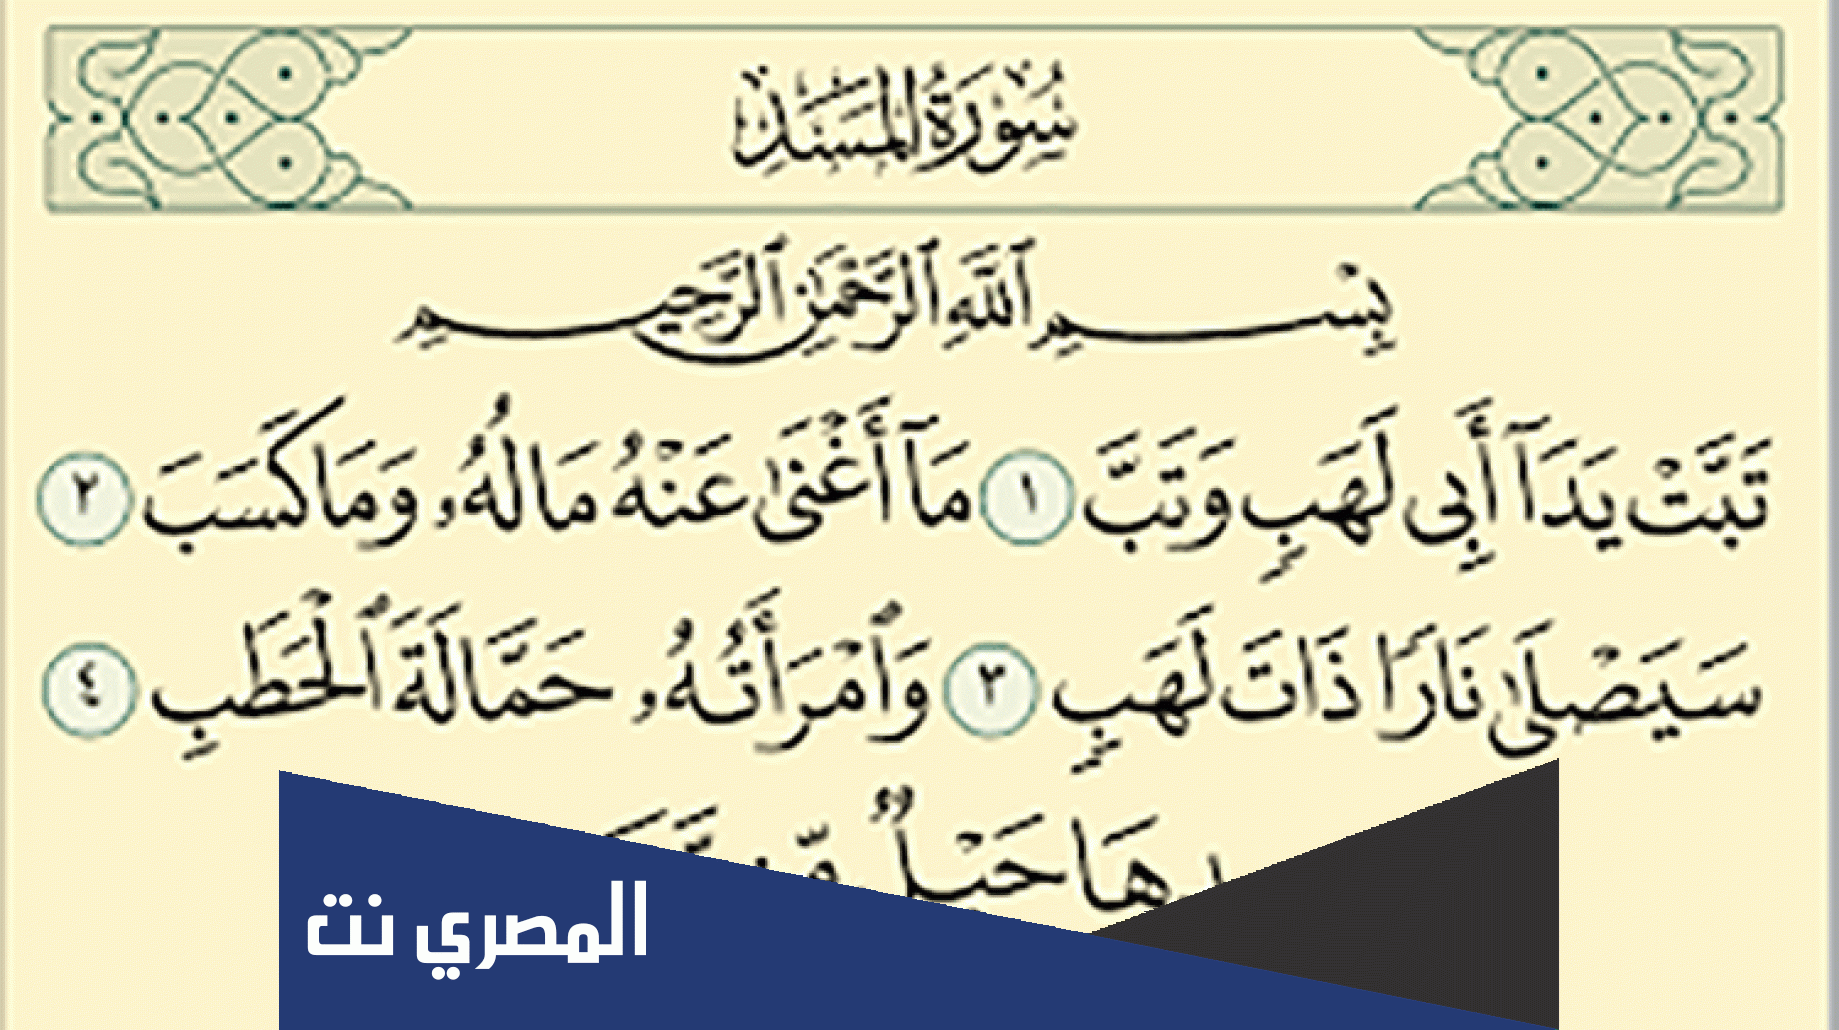 سُورَةُ المَسَدِ
بِسْمِ ٱللَّهِ ٱلرَّحْمَٰنِ ٱلرَّحِيمِ
تَبَّتْ يَدَآ أَبِى لَهَبٍ وَتَبَّ ١ مَآ أَغْنَىٰ عَنْهُ مَالُهُۥ وَمَا كَسَبَ ٢
سَيَصْلَىٰ نَارًا ذَاتَ لَهَبٍ ٣ وَٱمْرَأَتُهُۥ حَمَّالَةَ ٱلْحَطَبِ ٤
حَبْلٌ
المصري نت